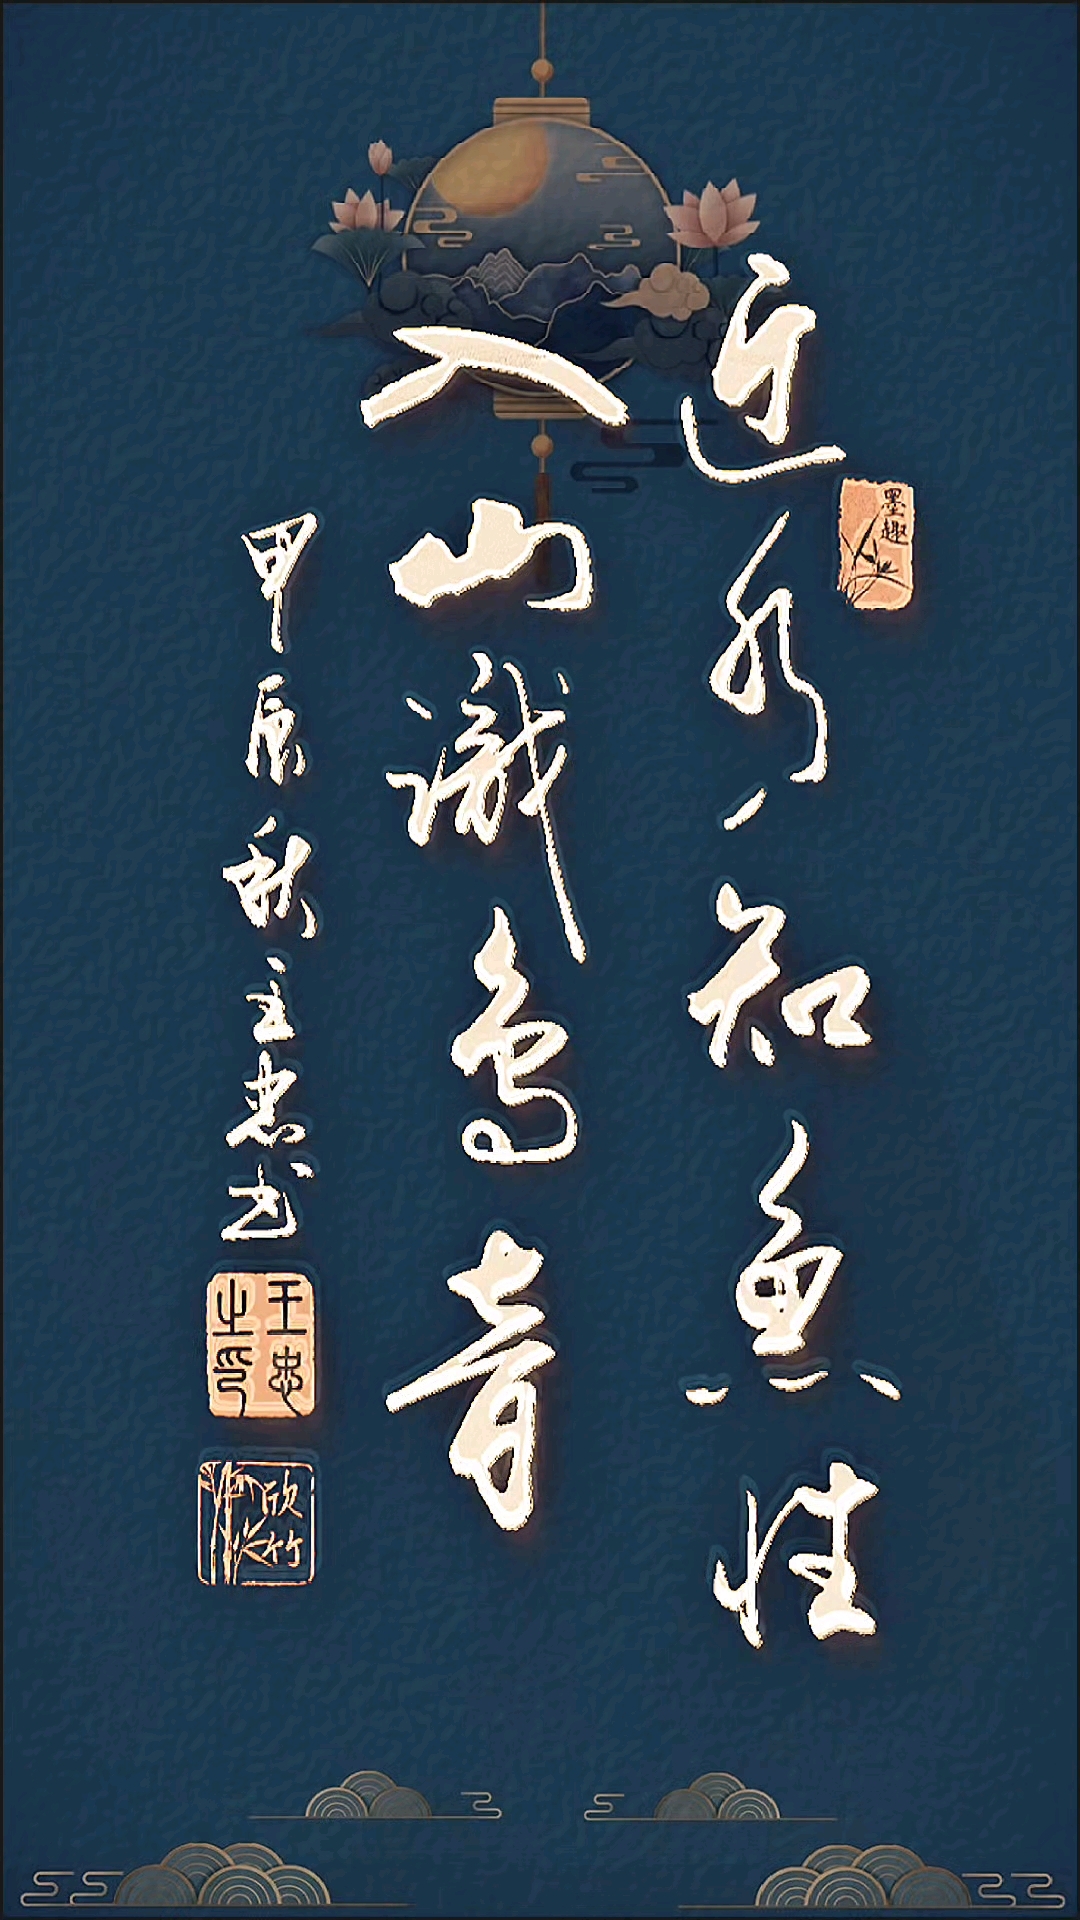 近水知鱼性
入山识鸟音
甲辰秋王忠书
墨趣
王忠之印
欣竹